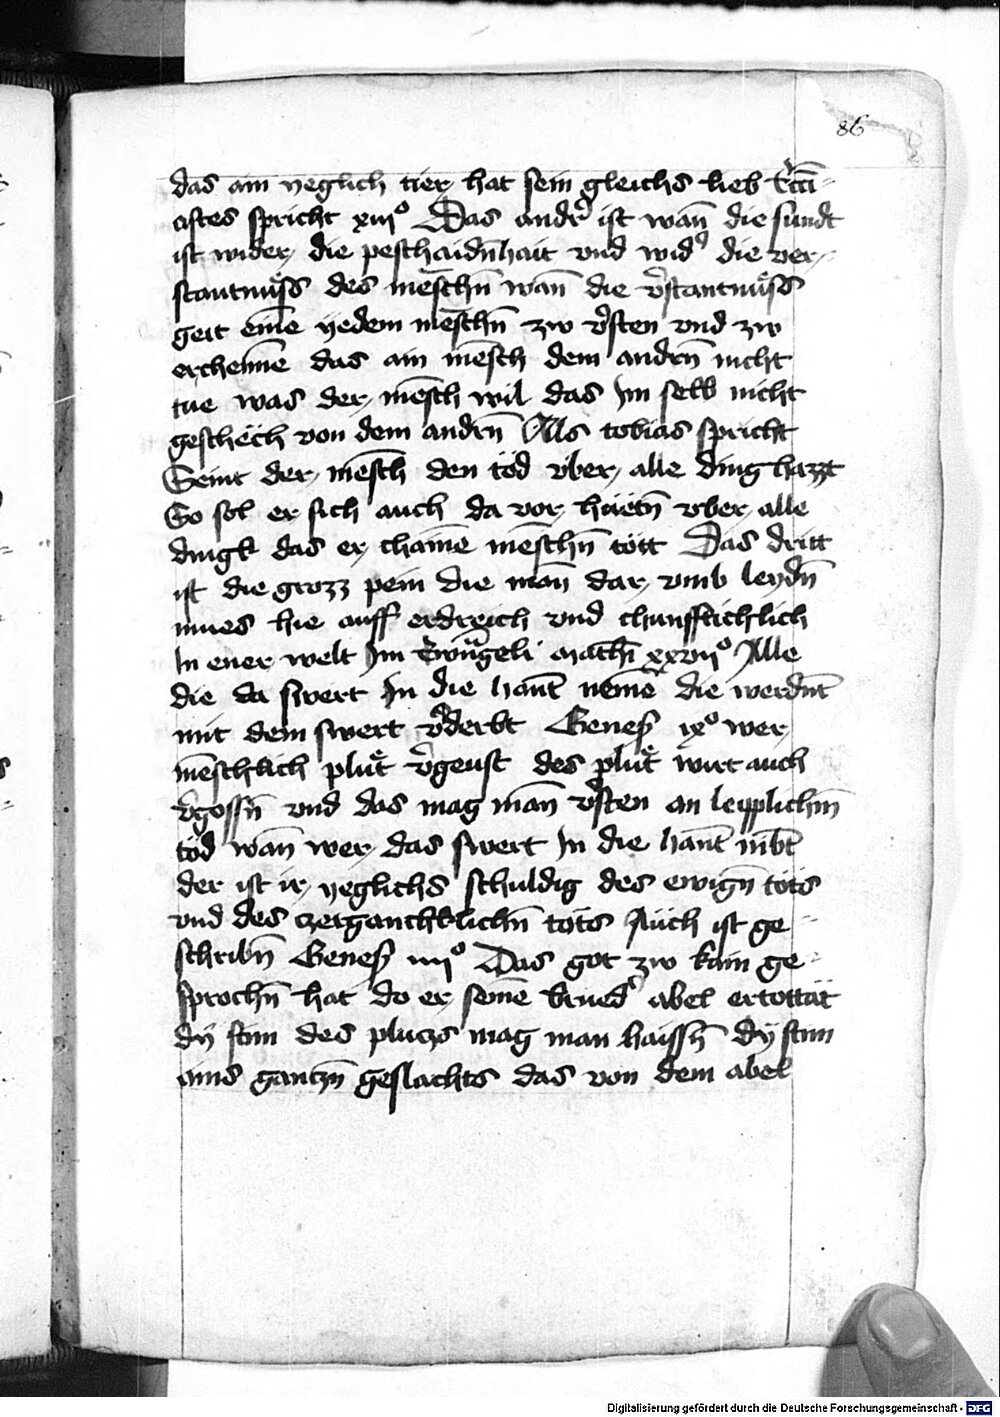 86
das ain yeglich tier hat sein gleichs lieb
astes spricht xiii° Das andr̉ ist wan̄ die sundt
ist wider die peschaidn̄hait vnd wid̉ die ver
stantnuͤss des mēschn̄ wan̄ die v̉stantnuͤss
geit eine̅ yedem mēschn̄ zw v̉sten vnd zw
erchenne̅ das ain mēsch dem andrn̄ nicht
tue was der mēsch wil das Im selb nicht
geschech von dem andrn̄ Als tobias spricht
Seint der mēsch den tod vber alle ding hazzt
So sol er sich auch da vor hüetn̄ vber alle
dingk das er chaine̅ mēschn̄ tött Das dritt
ist die grozz pein die man̄ dar vmb leydn̄
mues hie auff erdreich vnd chunfftichlich
In ener welt Im Ewāgeli math̄ xxvii° Alle
die da swert In die hant̄ neme̅ die werdnt̄
mit dem swert v̉derbt Genes̉ ix° wer
mēschlich pluͤt v̉geust des pluͤt wirt auch
v̉gossn̄ vnd das mag man̄ v̉sten an leyplichm̄
tod wan̄ wer das swert In die hant̄ nībt
der ist ir yeglichs schuldig des ewign̄ töts
vnd des zergancklichn̄ töts Auch ist ge
schribn̄ Genes̉ iiii° Das got zw kain ge
sprochn̄ hat do er seine̅ brued̉ abel ertottät
dÿ stim des plutzs mag man haissn̄ dÿ stim
ains gantzn̄ geslachts das von dem abel
Digitalisierung gefördert durch die Deutsche Forschungsgemeinschaft - DFG